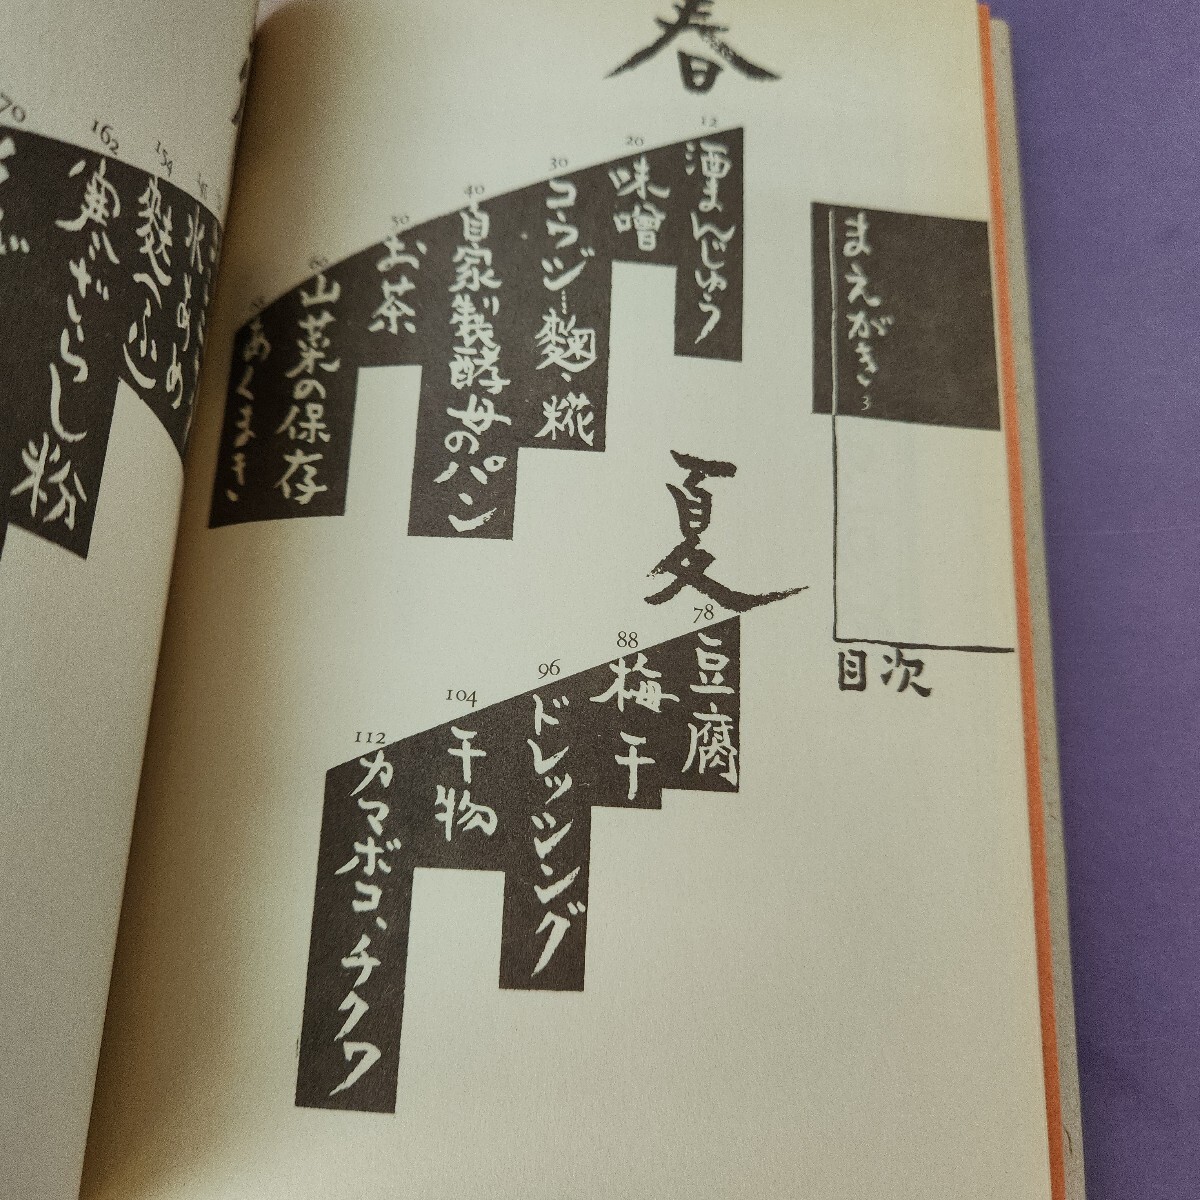 目次
まえがき 3
春
12 酒まんじゅう
20 味噌
30 コウジ…麹・糀
40 自家製酵母のパン
50 お茶
60 山菜の保存
あくまき
夏
78 豆腐
88 梅干
96 ドレッシング
104 干物
112 カマボコ、チクワ
水あめ
154
162
粉
70